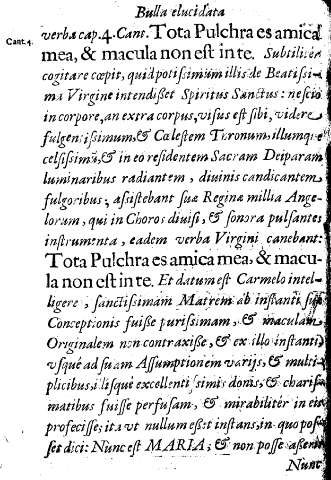 Bulla elucidata
verba cap. 4. Cant. Tota Pulchra es amica
Cant. 4.
mea, & macula non est in te. Subtiliùs
cogitare cœpit, quid potissimùm illis de Beatissi-
ma Virgine intendisset Spiritus Sanctus: nescio
in corpore, an extra corpus, visus est sibi, videre
fulgentissimum, & Cælestem Tronum, illumque
celsissimũ, & in eo residentem Sacram Deiparam
luminaribus radiantem, diuinis candicantem
fulgoribus; assistebant suæ Reginæ millia Ange-
lorum, qui in Choros diuisi, & sonora pulsantes
instrumenta, eadem verba Virgini canebant:
Tota Pulchra es amica mea, & macu-
la non est in te. Et datum est Carmelo intel-
ligere, sanctissimam Matrem ab instanti suæ
Conceptionis fuisse purissimam, & maculam
Originalem non contraxisse, & ex illo instanti
vsque ad suam Assumptionem varijs, & multi-
plicibus, illisque excellentissimis donis, & charis-
matibus fuisse perfusam, & mirabilitèr in eis
profecisse; ita vt nullum esset instans, in quo pos-
set dici: Nunc est MARIA; & non posse asseri
Nunc